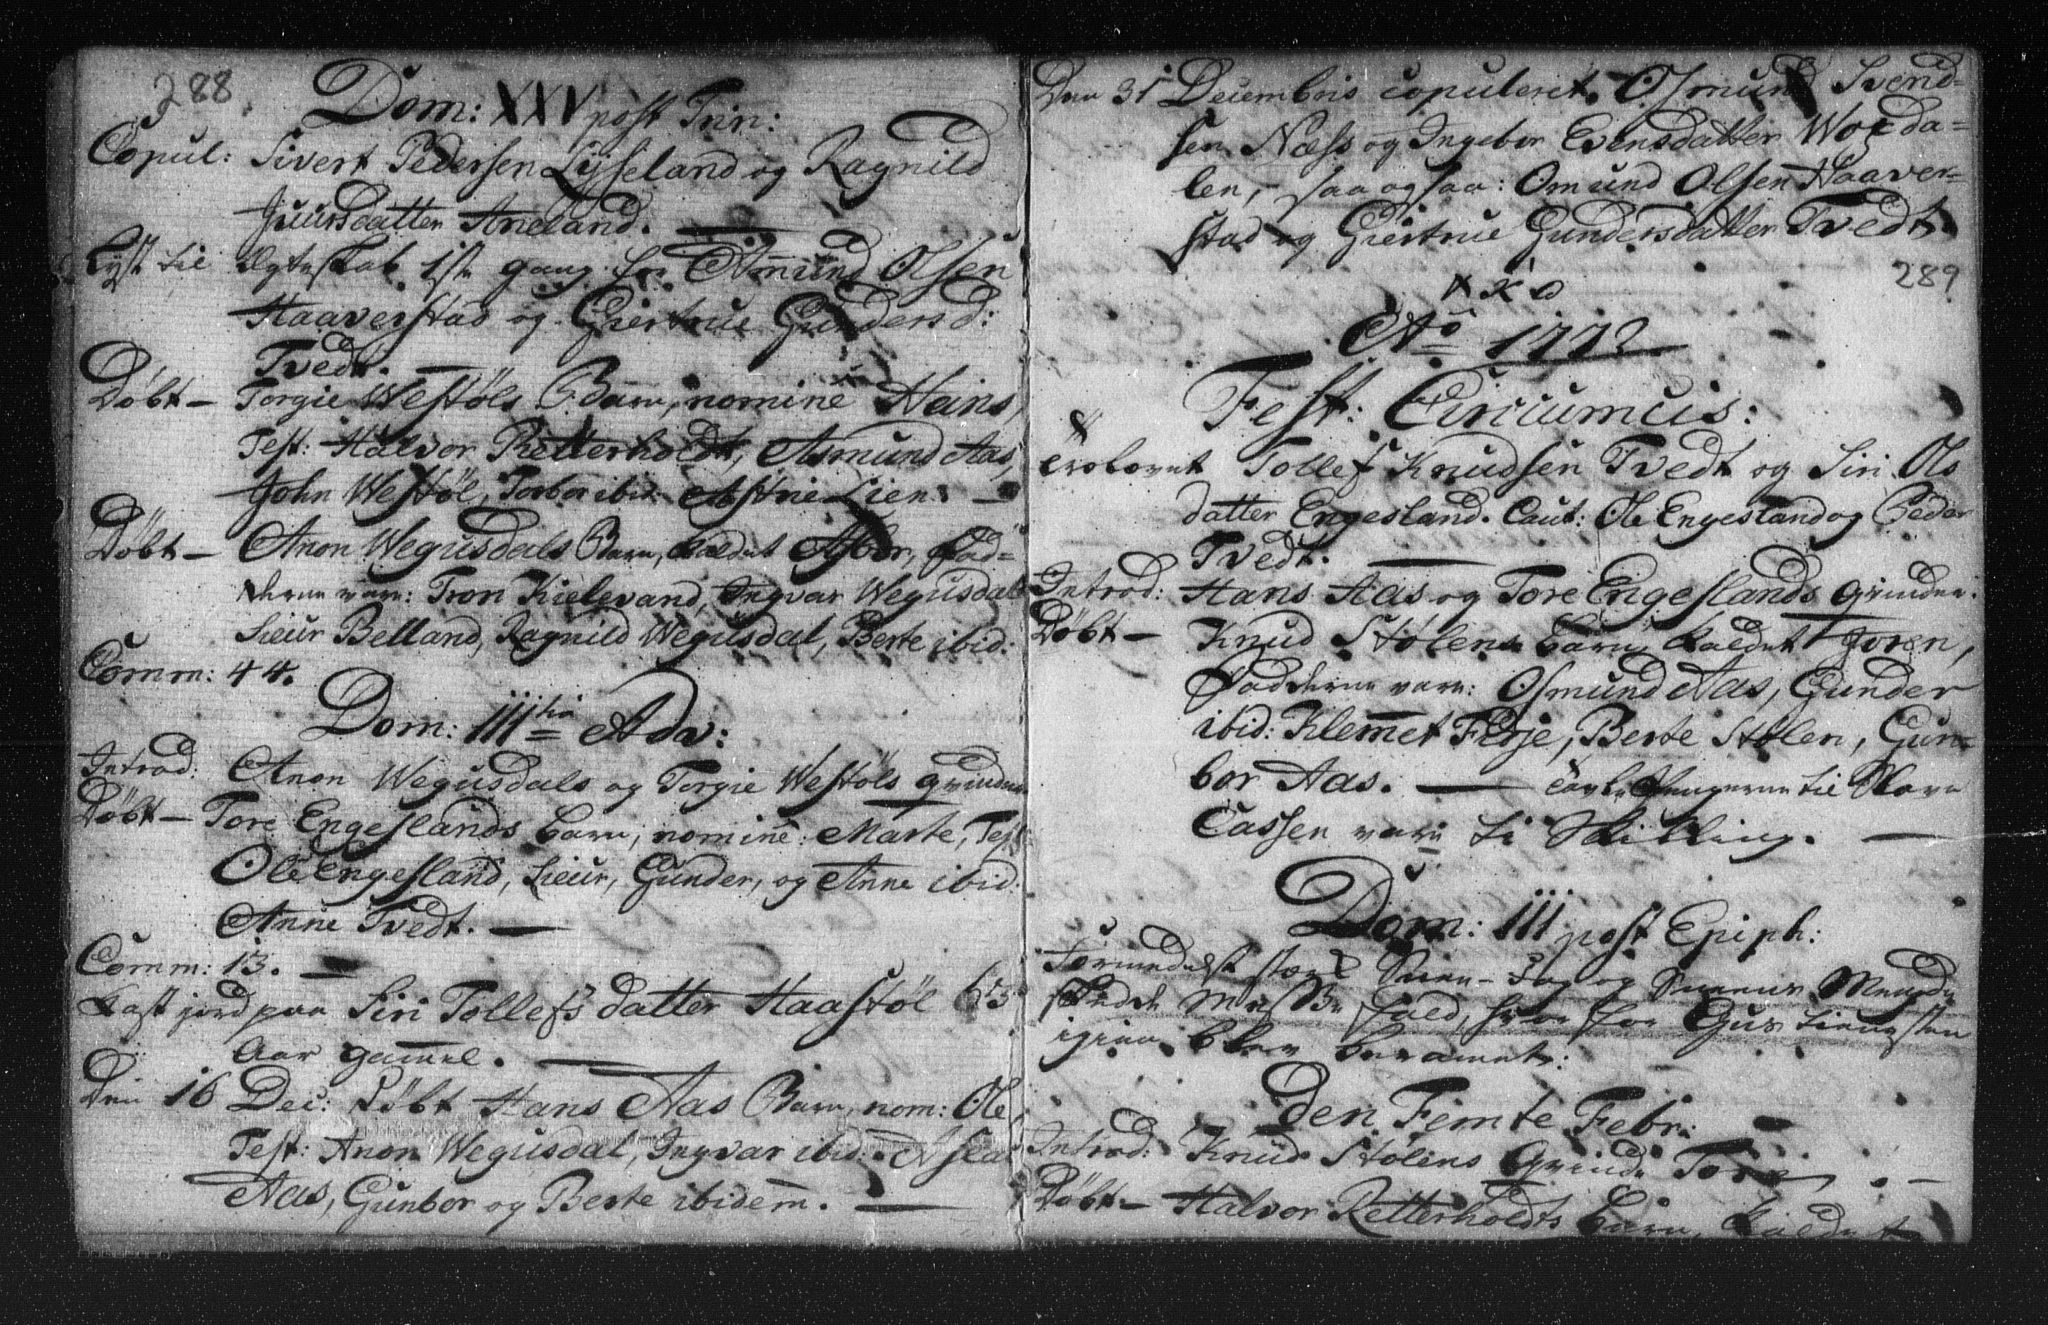 288.
Dom: XXV post Trin:
Copul: Sivert Pedersen Lysseland og Ragnild
Juursdatter Aneland. —
Lyst til Ægteskab 1ste gang for Amund Olsen
Haaverstad og Giertrue Gundersd:
Tvedt. —
Døbt — Torgie Westøls Barn, nomine Hans,
Test: Halvor Retterholdt, Asmund Aas,
John Westøl, Torbor ibid: Astrie Lien. —
Døbt — Anon Wegusdals Barn, kaldet Asbor, Fad-
derne vare: Tron Kielevand, Ingvar Wegusdal
Sieur Belland, Ragnild Wegusdal, Berte ibid:
Comm: 44.
Dom: III tia Adv:
Introd: Anon Wegusdals og Torgie Westøls qvinder
Døbt — Tore Engeslands barn, nomine: Marte, Test
Ole Engesland, Sieur, Gunder, og Anne ibid:
Anne Tvedt. —
Comm: 13. —
Kast jord paa Siri Tollefsdatter Haastøl 63
Aar gammel. —
Den 16 Dec: Døbt Hans Aas Barn, nom: Ole,
Test: Anon Wegusdal, Ingvar ibid: Aslau
Aas, Gunbor og Berte ibidem. —
Den 31 Decembris copuleret Osmund Svend-
sen Næss og Ingebor Evensdatter Woxda-
len, — saa ogsaa: Omund Olsen Haaver-
stad og Giertrue Gundersdatter Tvedt.
289
Ao 1772
Fest: Circumcis:
Trolovet Tollef Knudsen Tvedt og Siri Ols
datter Engesland. Caut: Ole Engesland og Peder
Tvedt. —
Introd: Hans Aas og Tore Engeslands qvinder.
Døbt — Knud Stølens barn kaldet Joren,
Fadderne vare: Osmund Aas, Gunder
ibid: Klemmet Ferje, Berte Stølen, Gun-
bor Aas. — Tavle Pengene til
Cassen vare ti Skilling. —
Dom: III post Epiph:
Formedelst stærk Snee-Fog og
Messe Fald, hvorfor Guds tienesten
igien blev beramet:
Den Femte Febr:
Introd: Knud Stølens Qvinde Tore. —
Døbt — Halvor Retterholdts barn, kaldet